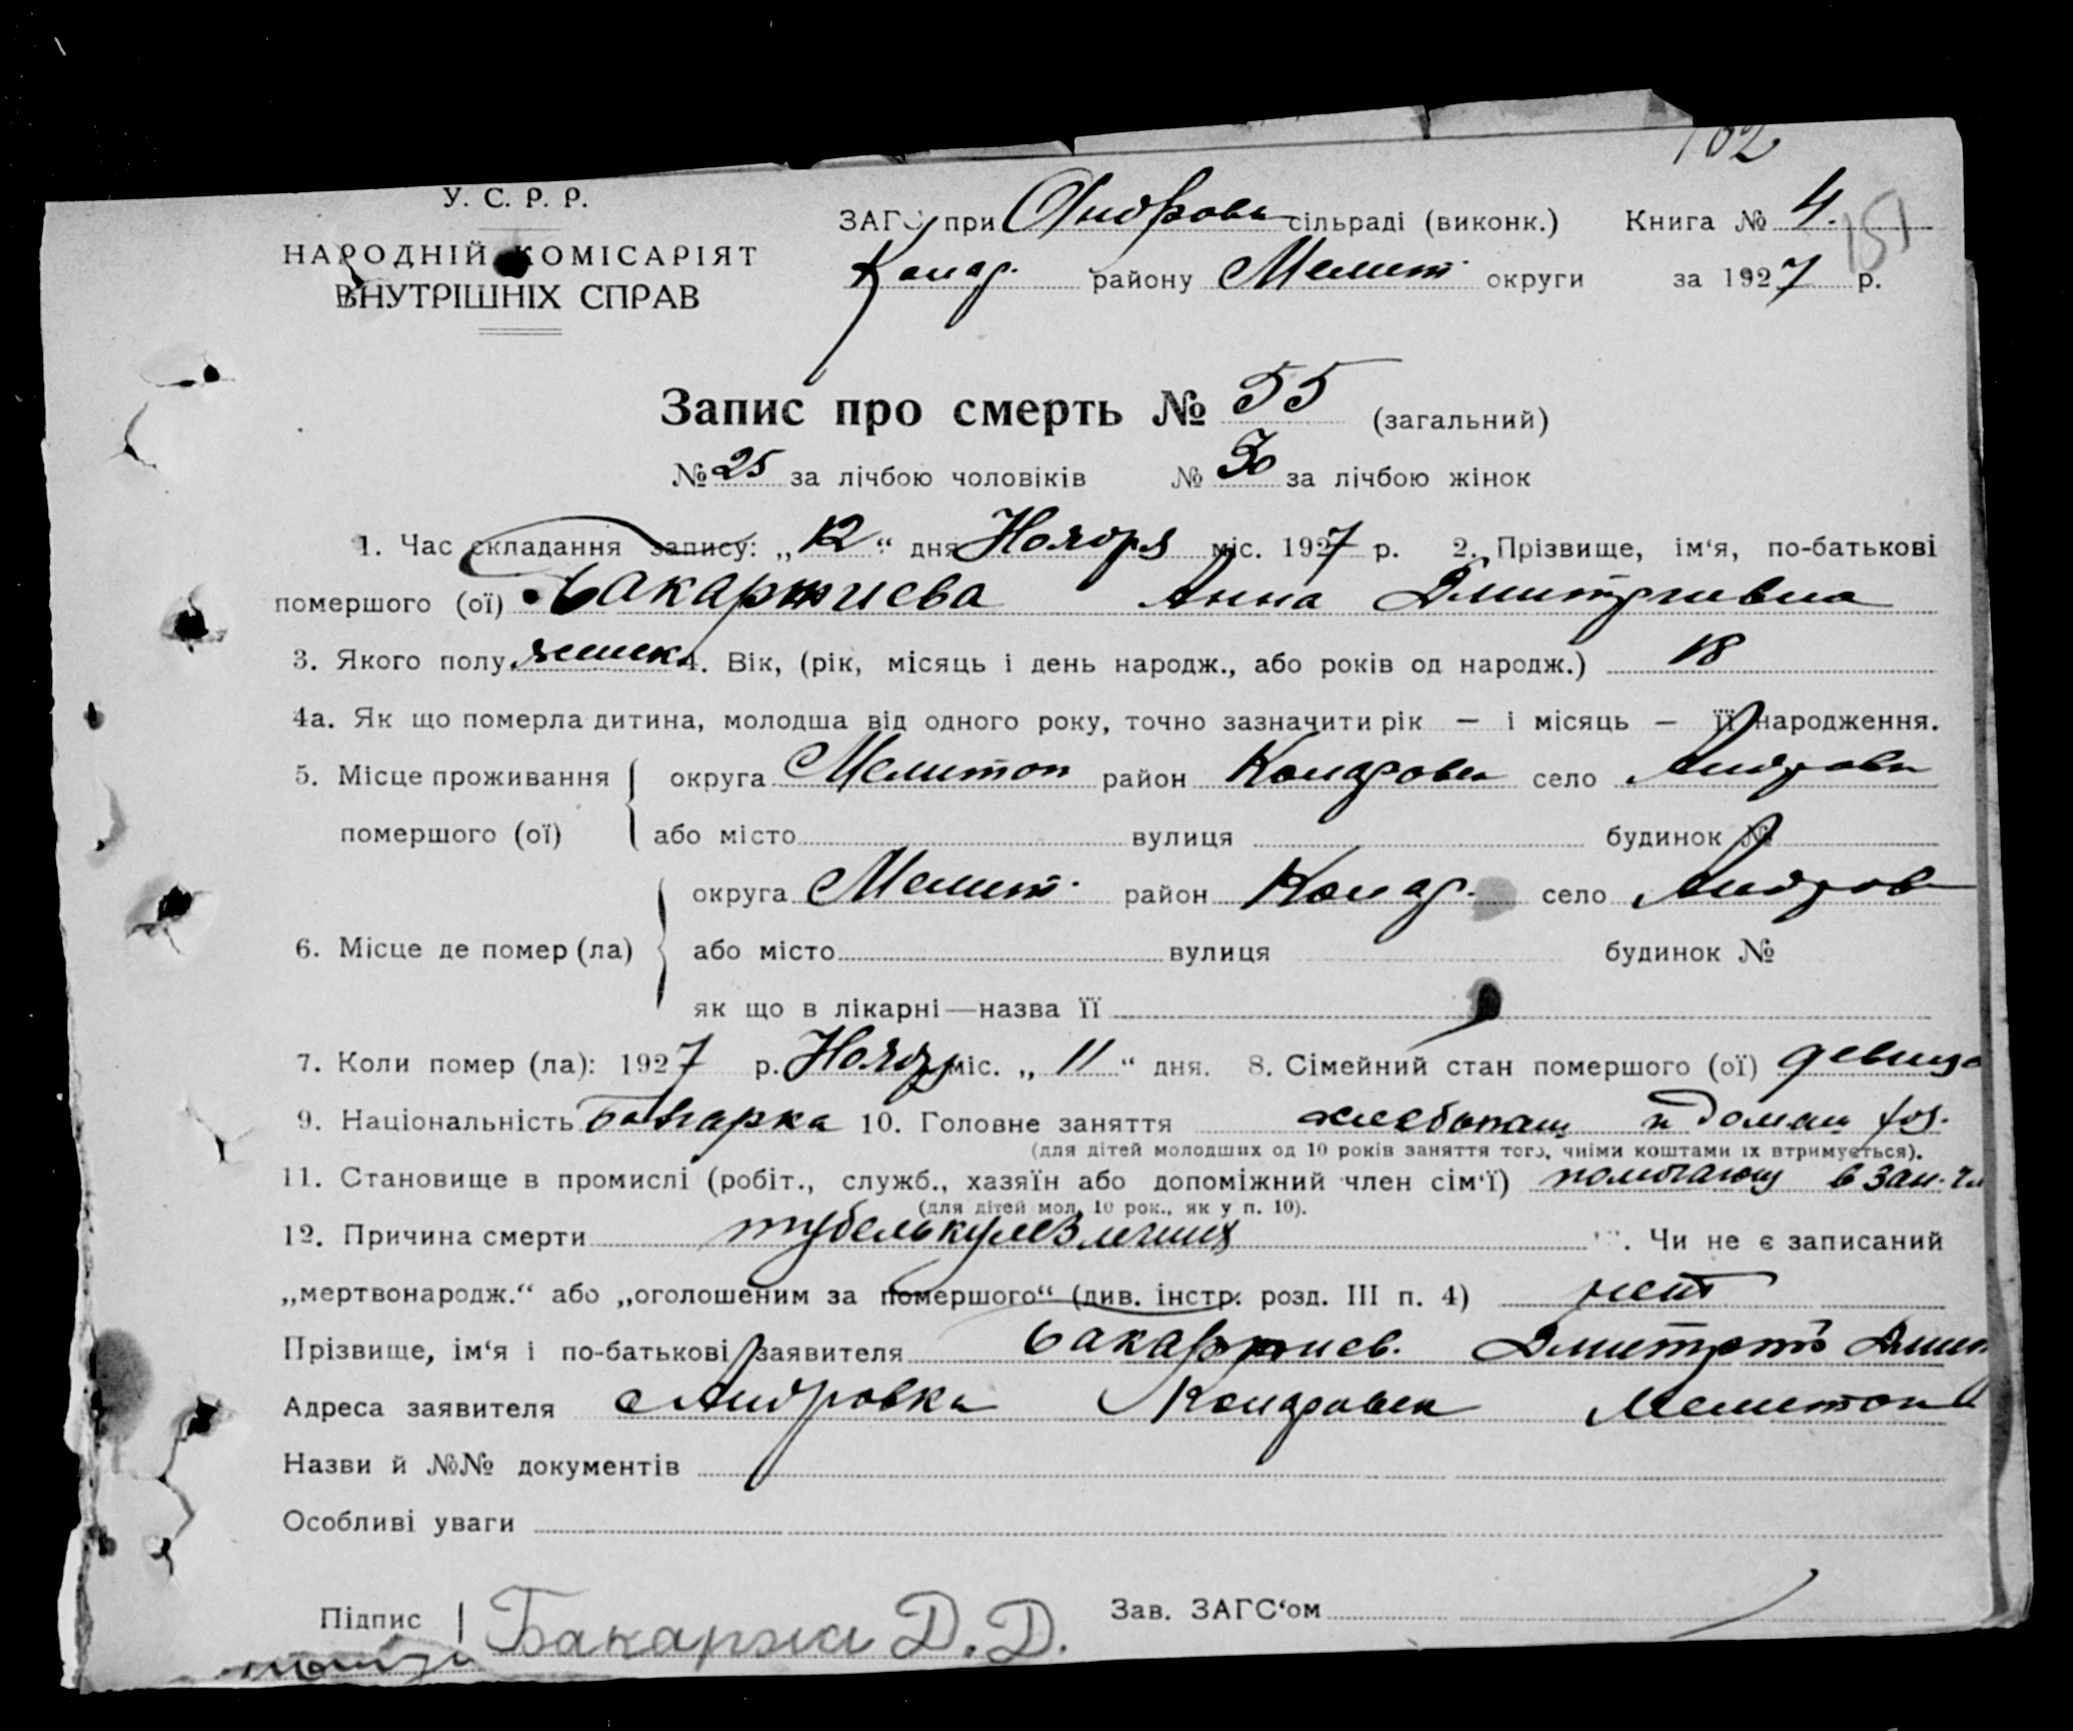 102
У. С. Р. Р.
НАРОДНІЙ КОМІСАРІЯТ
ВНУТРІШНІХ СПРАВ
ЗАГС при Андровк сільраді (виконк.) Книга № 4. 151
Колар. району Мелит. округи за 1927 р.
Запис про смерть № 55 (загальний)
№ 25 за лічбою чоловіків № 30 за лічбою жінок
1. Час складання запису: „12“ дня Ноября міс. 1927 р. 2. Прізвище, ім‘я, по-батькові
помершого (ої) Бакаржиева Анна Дмитриевна
3. Якого полу женск. 4. Вік, (рік, місяць і день народж., або років од народж.) 18
4а. Як що померла дитина, молодша від одного року, точно зазначити рік — і місяць — її народження.
5. Місце проживання округа Мелитоп район Коларовск село Андровк
помершого (ої) або місто вулиця будинок №
округа Мелит. район Колар. село Андров
6. Місце де помер (ла) або місто вулиця будинок №
як що в лікарні—назва її
7. Коли помер (ла): 1927 р. Ноября міс. „11“ дня. 8. Сімейний стан помершого (ої) девица
9. Національність Болгарка 10. Головне заняття хлебопаш и домаш хоз.
(для дітей молодших од 10 років заняття того, чиїми коштами їх втримується).
11. Становище в промислі (робіт., служб., хазяїн або допоміжний член сім‘ї) помогающ в зан.
(для дітей мол. 10 рок., як у п. 10).
12. Причина смерти туберкулез легких . Чи не є записаний
„мертвонародж.“ або „оголошеним за помершого“ (див. інстр. розд. III п. 4) нет
Прізвище, ім‘я і по-батькові заявителя Бакаржиев. Дмитрий Дмит
Адреса заявителя Андровка Коларовск Мелитоп
Назви й №№ документів
Особливі уваги
Підпис Бакаржи Д. Д. Зав. ЗАГС‘ом